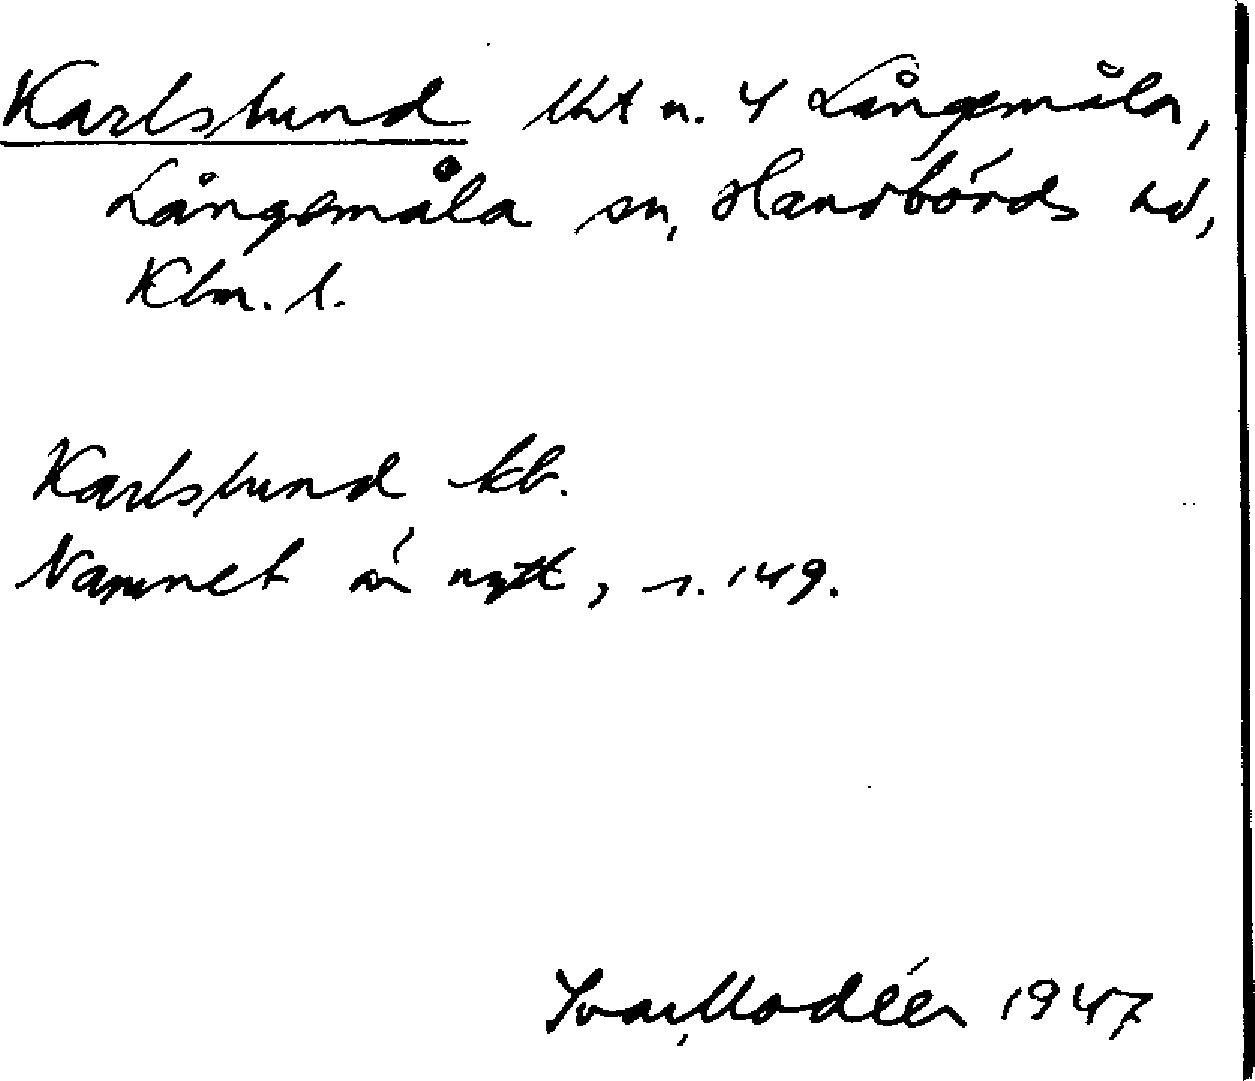 Karlslund lht n. 4 Långemåla,
Långemåla sn, Handbörds hd,
Klm. l.
Karlslund kb.
Namnet är nytt, s. 149.
Ivar Modéer 1947